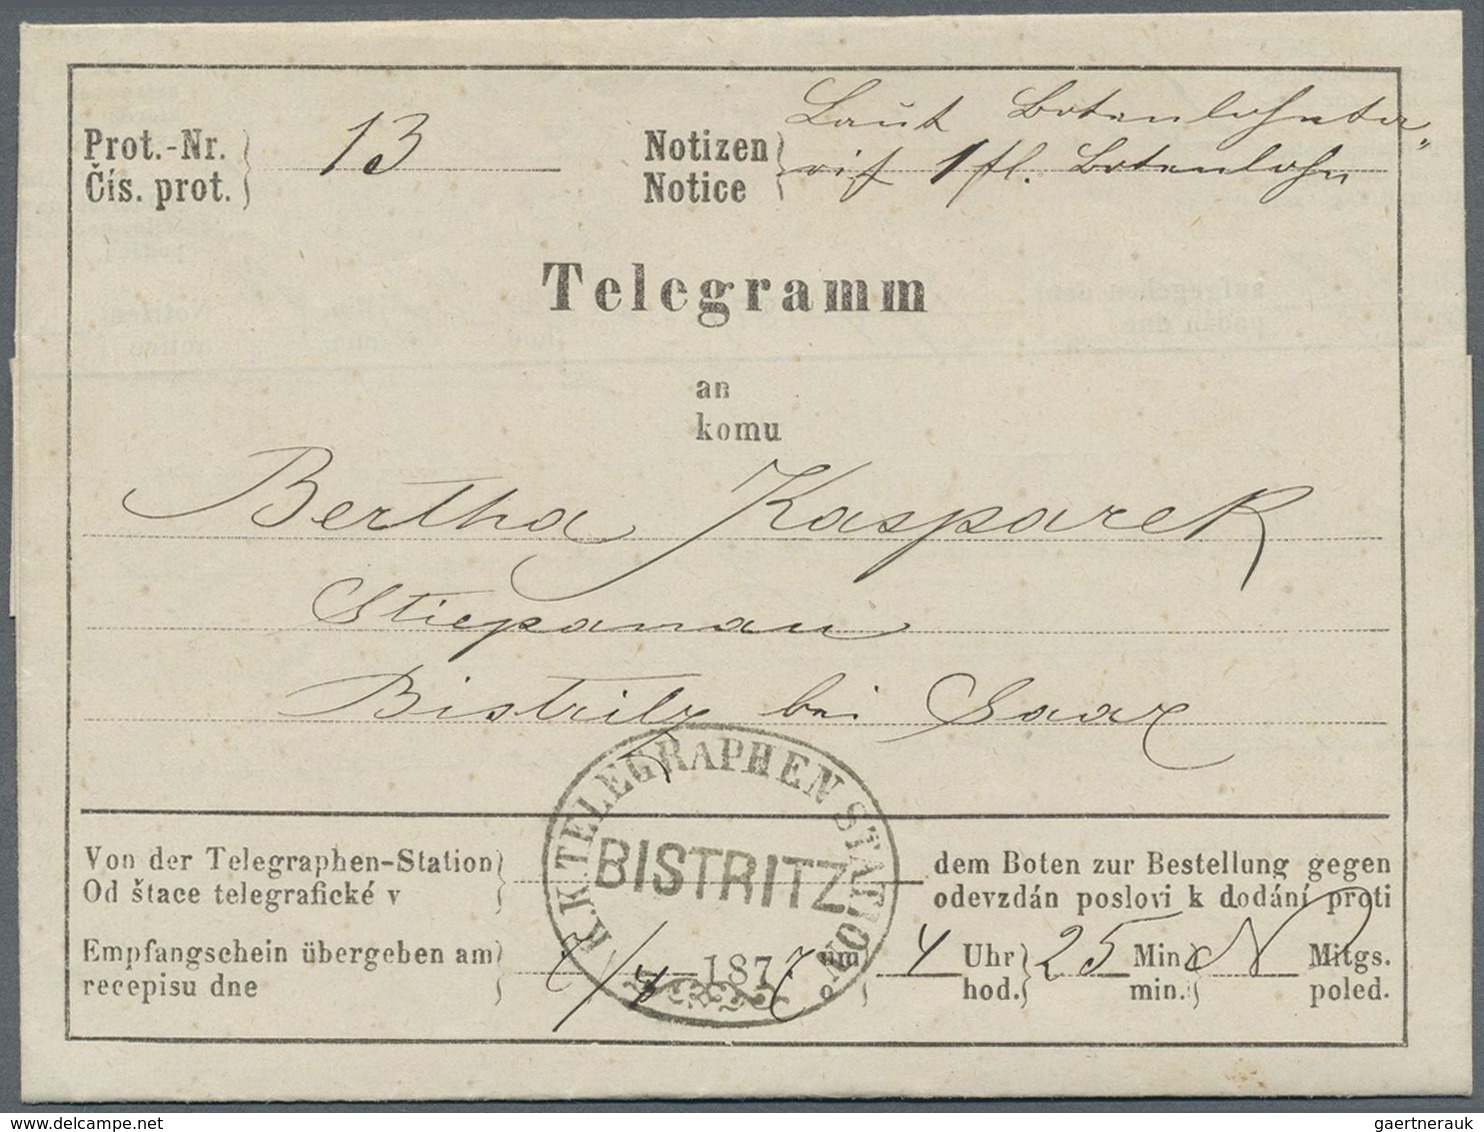 Laut Botenlohnta„
Prot.-Nr. 13 Notizen rif 1 fl. Botenlohn
Čís. prot. Notice
Telegramm
an
komu
Bertha Kasparek
Stiepanau
Bistritz bei Saar
K.K. TELEGRAPHEN STATION
BISTRITZ
Von der Telegraphen-Station dem Boten zur Bestellung gegen
Od štace telegrafické v odevzdán poslovi k dodání proti
Empfangschein übergeben am 7/8 1877 um 4 Uhr 25 Min N Mitgs.
recepisu dne o hod. min. poled.
www.delcampe.net
gaertnerauk